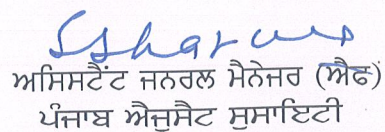 Ssharma
ਅਸਿਸਟੈਂਟ ਜਨਰਲ ਮੈਨੇਜਰ (ਐਫ)
ਪੰਜਾਬ ਐਜੂਸੈਟ ਸੁਸਾਇਟੀ